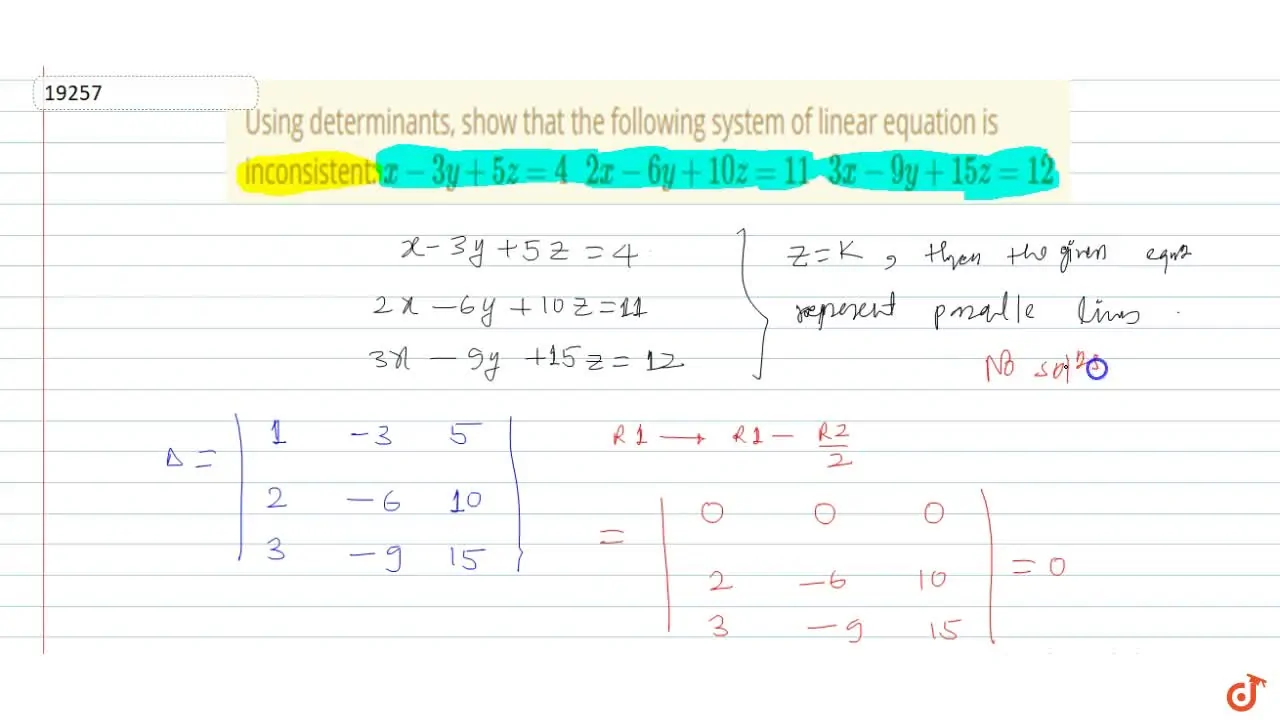 19257
Using determinants, show that the following system of linear equation is
inconsistent: x − 3y + 5z = 4 2x − 6y + 10z = 11 3x − 9y + 15z = 12
x - 3y + 5z = 4
2x - 6y + 10z = 11
3x - 9y + 15z = 12
z = K, then the given eqns
represent paralle lines.
No solns
Δ = | 1 -3 5 |
| 2 -6 10 |
| 3 -9 15 |
R1 → R1 - R2/2
= | 0 0 0 |
| 2 -6 10 | = 0
| 3 -9 15 |